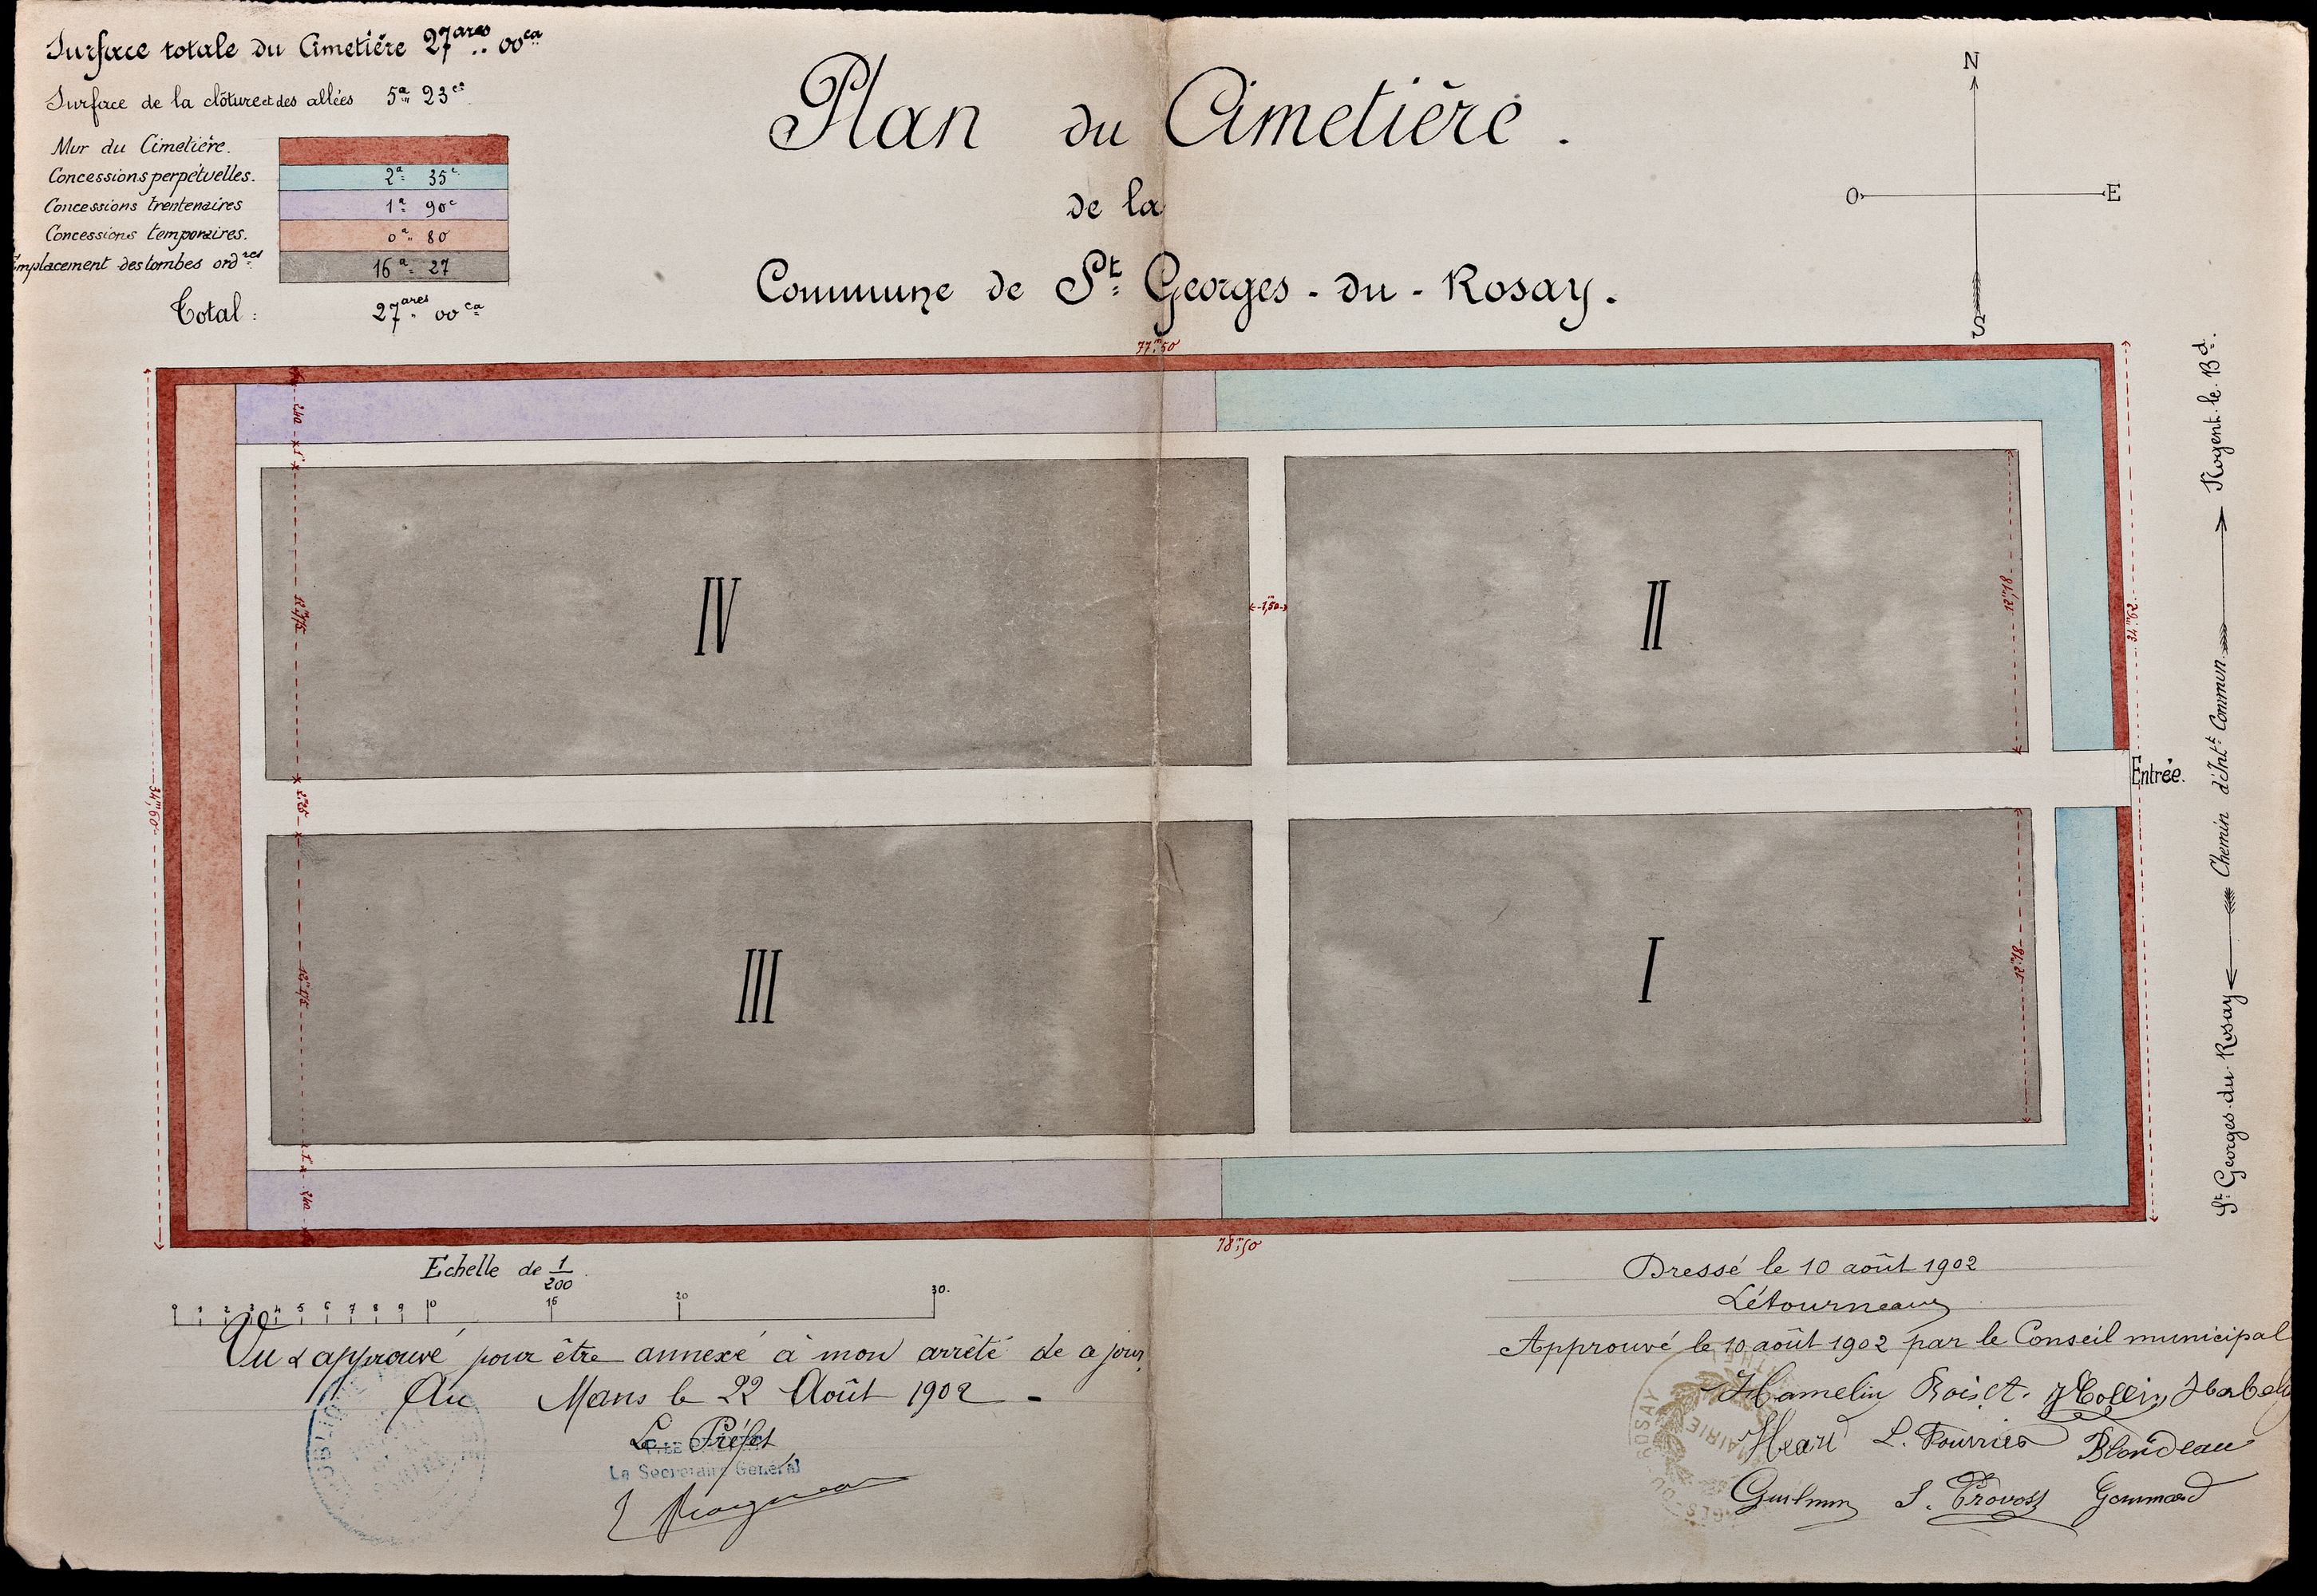 Surface totale du Cimetière 27 ares 00 ca
Surface de la clôture et des allées 5a 23ca
Mur du Cimetière.
Concessions perpétuelles. 2a 35c
Concessions trentenaires 1a 90c
Concessions temporaires. 0a 80
Emplacement des tombes ordres 16a 27
Total: 27 ares 00 ca
Plan du Cimetière.
de la
Commune de St Georges-du-Rosay.
N
O E
S
77m50
2m40
1m
IV
II
1m,50
12m,75
12m,18
29m,73
Entrée.
34m,60
2m,25
III
I
12m,75
12m,18
1m
2m40
78m,50
Nogent-le-Bd.
Chemin d'Intt Commun
St Georges-du-Rosay
Echelle de 1/200
0 1 2 3 4 5 6 7 8 9 10 15 20 30.
Vu & approuvé pour être annexé à mon arrêté de ce jour
Au Mans le 22 Août 1902 -
Le Préfet
Le Secrétaire Général
Dressé le 10 août 1902
Létourneau
Approuvé le 10 août 1902 par le Conseil municipal
Hamelin
L. Fourrier Blondeau
Guilmin S. Provost Gommard
MAIRIE
ROSAY